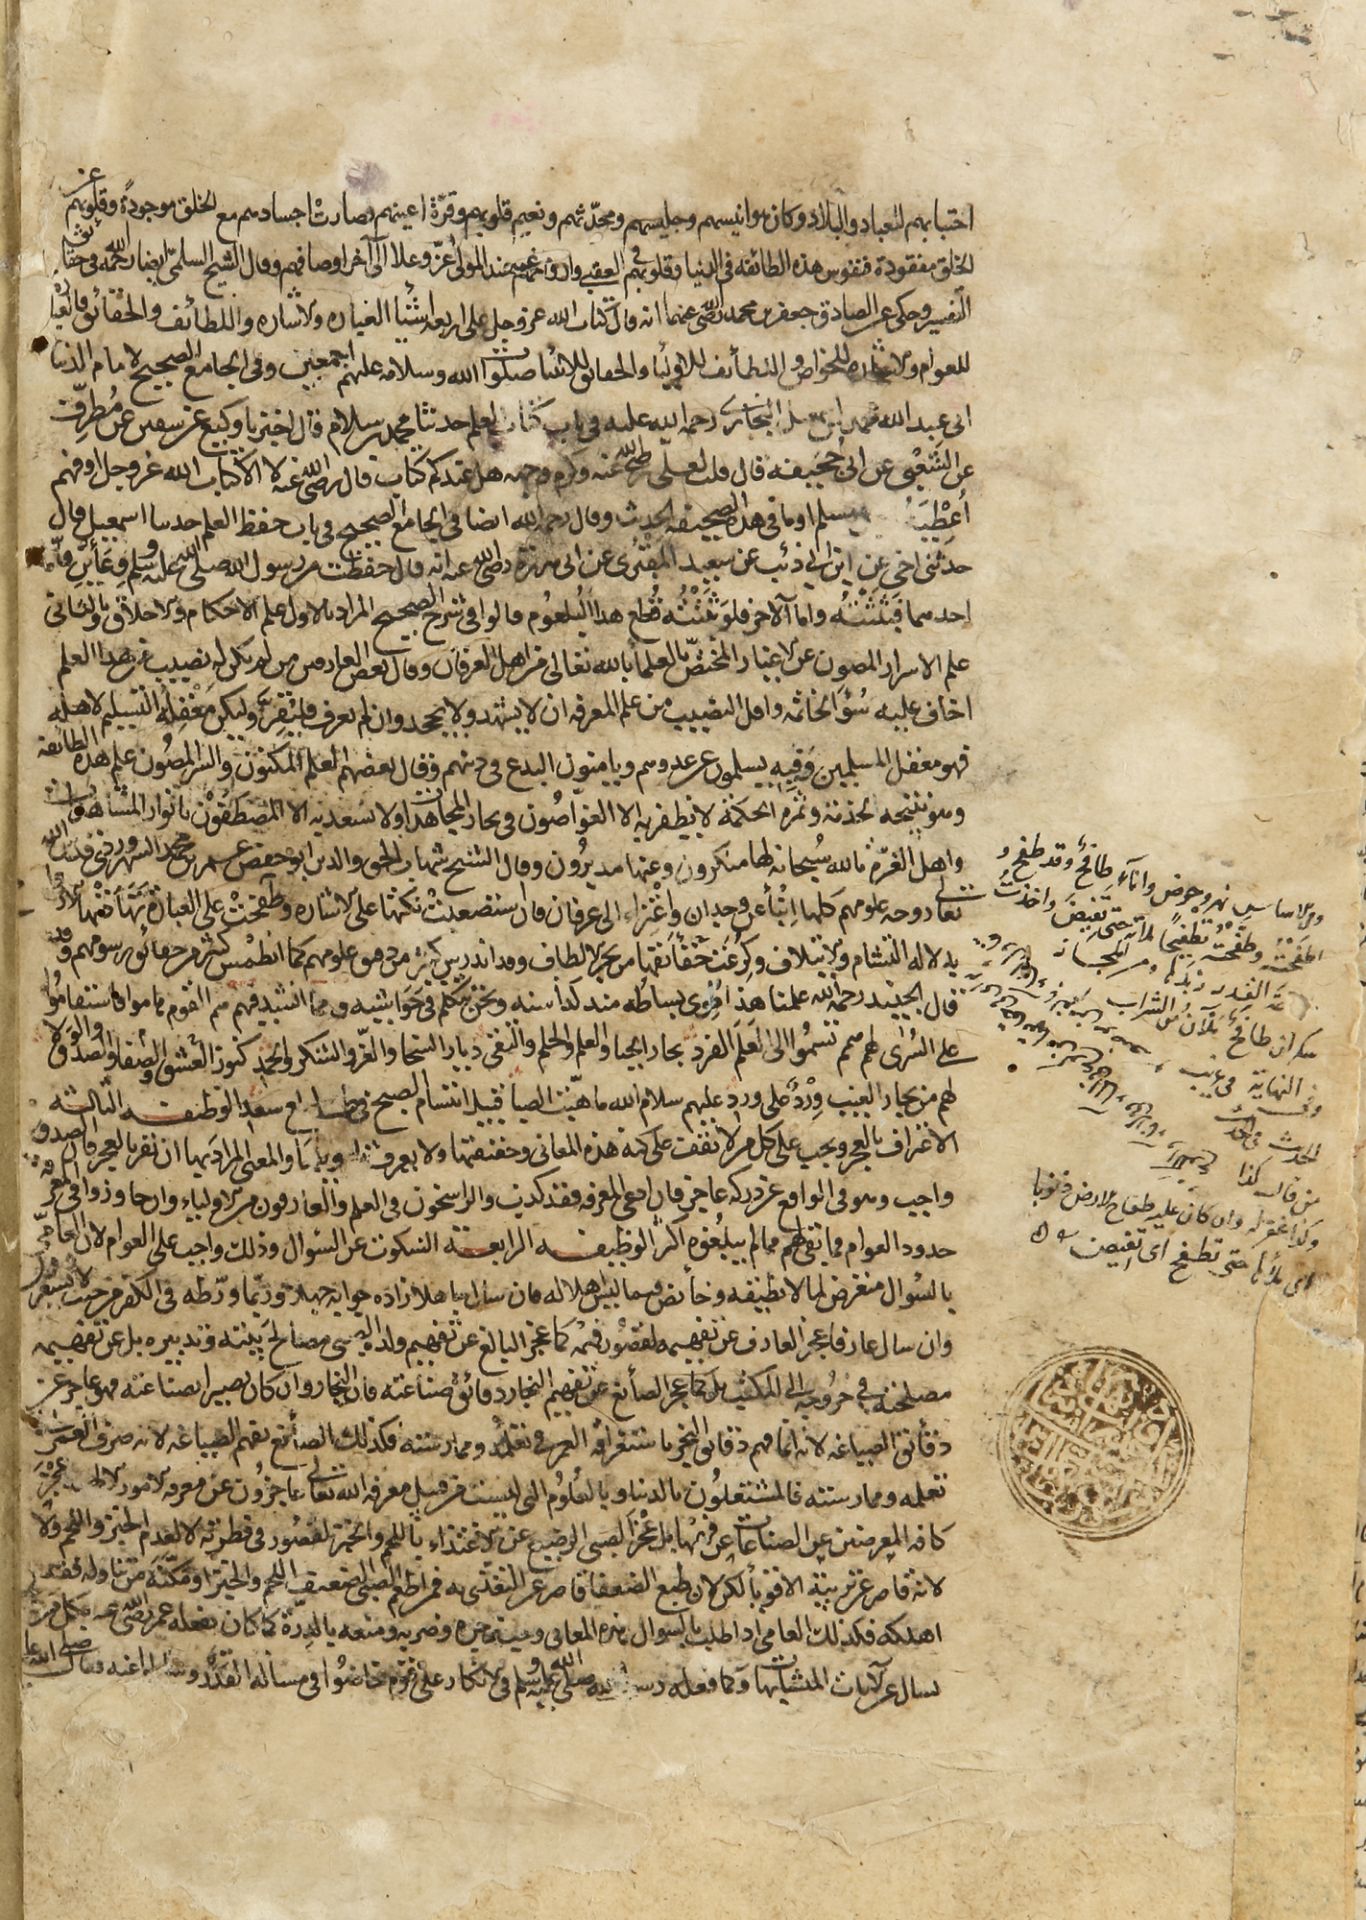 احتبابهم للعباد والبلاد وكان هو انيسهم وجليسهم ومحدثهم ونعيم قلوبهم وقرة اعينهم فصارت اجسادهم مع الخلق موجودة وقلوبهم عن
الخلق مفقودة فنفوس هذه الطائفة في الدنيا وقلوبهم في العقبى وارواحهم عند المولى عز وعلا الى آخر اوصافهم وقال الشيخ السلمي ايضا رحمه الله في حقائق
التفسير وحكي عن الصادق جعفر بن محمد رضي الله عنهما انه قال كتاب الله عز وجل على اربعة اشياء العبارة والاشارة واللطائف والحقائق فالعبارة
للعوام والاشارة للخواص واللطائف للاولياء والحقائق للانبياء صلوات الله وسلامه عليهم اجمعين وفي الجامع الصحيح لامام الدنيا
ابي عبد الله محمد بن اسمعيل البخاري رحمة الله عليه في باب كتاب العلم حدثنا محمد بن سلام قال اخبرنا وكيع عن سفين عن مطرف
عن الشعبي عن ابي جحيفة قال قلت لعلي رضي الله عنه وكرم وجهه هل عندكم كتاب قال رضي الله عنه لا الا كتاب الله عز وجل او فهم
اعطيه مسلم او ما في هذه الصحيفة الحديث وقال رحمه الله ايضا في الجامع الصحيح في باب حفظ العلم حدثنا اسمعيل قال
حدثني اخي عن ابن ابي ذئب عن سعيد المقبري عن ابي هريرة رضي الله عنه انه قال حفظت من رسول الله صلى الله عليه وسلم وعائين فاما
احدهما فبثثته واما الآخر فلو بثثته قطع هذا البلعوم قالوا في شرح الصحيح المراد بالاول علم الاحكام والاخلاق وبالثاني
علم الاسرار المصون عن الاغيار المختص بالعلماء بالله تعالى من اهل العرفان وقال بعض العارفين من لم يكن له نصيب من هذا العلم
اخاف عليه سوء الخاتمة واقل النصيب من علم المعرفة ان لا يشهد ولا يجحد وان لم يعرف وليكن التسليم لاهله
فهو معقل المسلمين وفيه يسلمون عن عدوهم ويامنون البدع في دينهم وقال بعضهم العلم المكنون والسر المصون علم هذه الطائفة
وهو نتيجة الخدمة وثمرة الحكمة لا يظفر به الا الغواصون في بحار المجاهدات ولا يسعد به الا المصطفون بانوار المشاهدات
واهل الغرة بالله سبحانه لها منكرون وعنها مدبرون وقال الشيخ شهاب الحق والدين ابو حفص عمر بن محمد السهروردي قدس الله
تعالى روحه علومهم كلها انباء عن وجدان واعتزاء الى عرفان استضعبت نكتها على الاشارة وطفحت على العبارة
به دلالة التشام والائتلاف وكرعت حقائقها من بحر الالطاف وقد اندرس كثير من دقيق علومهم كما انطمس كثير من حقائق رسومهم وقد
قال الجنيد رحمه الله علمنا هذا طوي بساطه منذ كذا سنة ونحن نتكلم في حواشيه ومما انشد فيهم هم القوم قاموا فاستقاموا
على السرى لهم همم تسمو الى العلم الفرد بحار الحيا والعلم والحلم والتقى ديار السخا والعز والشكر والحمد كنوز العشق والصفاء والصدق والولا
لهم من بحار الغيب ورد على ورد عليهم سلام الله ما هبت الصبا قبيل ابتسام الصبح الوظيفة الثالثة
الاعتراف بالعجز ويجب على كل من لا يقف على كنه هذه المعاني وحقيقتها ولا يعرف تاويلها والمعنى المراد بها ان يقر بالعجز فان الصدق
واجب وهو في الواقع عن دركه عاجز فان ادعى المعرفة فقد كذب والراسخون في العلم والعارفون من الاولياء وان جاوزوا في المعرفة
حدود العوام فما بقي لهم مما لم يبلغوه اكثر الوظيفة الرابعة السكوت عن السؤال وذلك واجب على العوام لان العامي
بالسؤال متعرض لما لا يطيقه وخائض فيما ليس اهلا له فان سأل جاهلا زاده جوابه جهلا وربما ورطه في الكفر من حيث لا يشعر
وان سال عارفا عجز العارف عن تفهيمه لقصور فهمه كما عجز البالغ عن تفهيم ولده الصبي مصالح بيته وتدبيره بل عن تفهيمه
مصلحته في خروجه الى المكتب بل كما عجز الصائغ عن تفهيم النجار دقائق صناعته فان النجار وان كان بصيرا بصناعته فهو عاجز عن
دقائق الصياغة لانه انما فهم دقائق النجر باستغراقه العمر في تعلمه وممارسته فكذلك الصائغ يفهم الصياغة لانه صرف العمر الى
تعلمه وممارسته فالمشتغلون بالدنيا وبالعلوم التي ليست من قبيل معرفة الله تعالى عاجزون عن معرفة الامور الالهية عجز
كافة المعرضين عن الصناعات عن فهمها بل عجز الصبي الرضيع عن الاغتذاء باللحم والخبز لقصور في فطرته لا لعدم الخبز واللحم ولا
لانه قاصر عن تربية الاقوياء لكن لان طبع الضعفاء قاصر عن التغذي به فمن اطعم الصبي الضعيف اللحم والخبز او مكنه من تناوله فقد
اهلكه فكذلك العامي اذا طلب بالسؤال هذه المعاني وجب زجره وضربه ومنعه بالدرة كما كان يفعله عمر رضي الله عنه بكل من
سال عن الآيات المتشابهات وكما فعله رسول الله صلى الله عليه وسلم في الانكار على قوم خاضوا في مسألة القدر وسألوا عنه فقال صلى الله عليه
وفي الاساس نهر وحوض واناء طافح وقد طفح و
اطفحته وطفحته تطفيحا ملأته حتى يفيض واخذت
القدر زبدها ومن المجاز
سكران طافح ملآن من الشراب
وفي النهاية في غريب
الحديث
من قال كذا
وكذا غفر له وان كان عليه طفاح الارض ذنوبا
اي ملؤها حتى تطفح اي تفيض